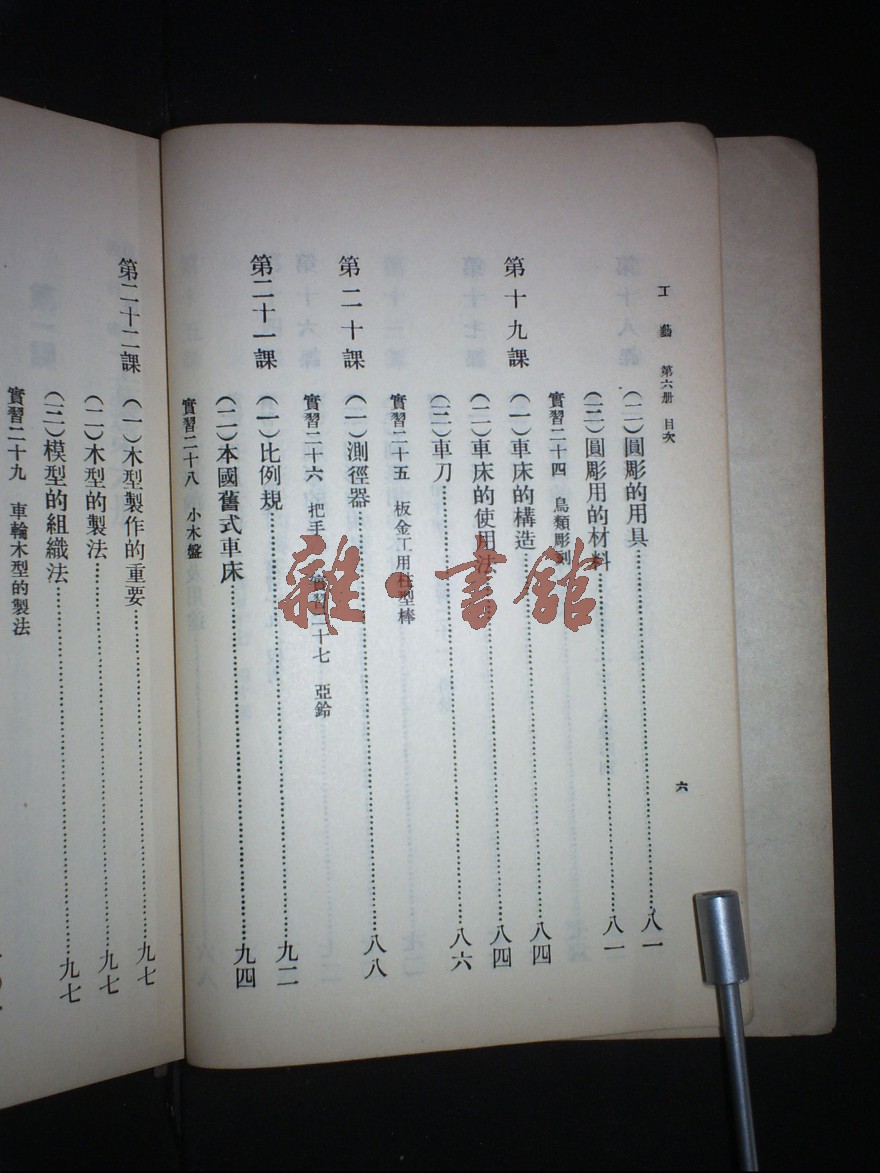 工藝 第六册 目次
六
(二)圓彫的用具……八一
(三)圓彫用的材料……八一
實習二十四 鳥類彫刻
第十九課
(一)車床的構造……八四
(二)車床的使用法……八四
(三)車刀……八六
實習二十五 板金工用柱型棒
第二十課
(一)測徑器……八八
實習二十六 把手 實習二十七 亞鈴
第二十一課
(一)比例規……九二
(二)本國舊式車床……九四
實習二十八 小木盤
第二十二課
(一)木型製作的重要……九七
(二)木型的製法……九七
(三)模型的組織法……九七
實習二十九 車輪木型的製法
雜·書館